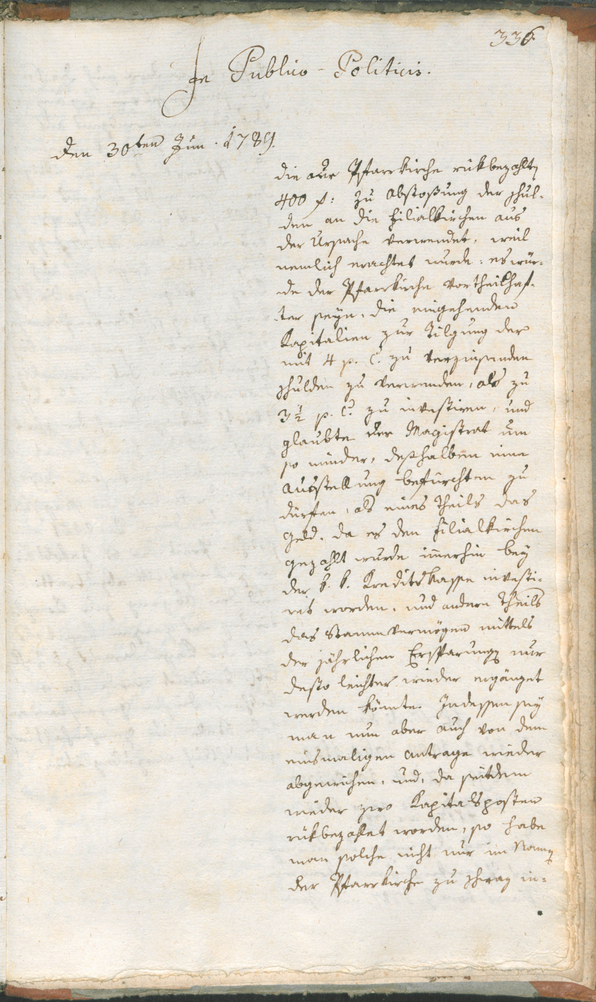 336.
In Publico-Politicis.
den 30ten Jun. 1789.
die der Pfarrkirche rükbezahlte
400 f: zu Abstoßung der Schul-
den an die Filialkirchen aus
der Ursache verwendet, weil
nemlich erachtet wurde: es wür-
de der Pfarrkirche vortheilhaf-
ter seyn, die eingehenden
Kapitalien zur Tilgung der
mit 4 p. C. zu verzinsenden
Schulden zu verwenden, als zu
3½ p. C. zu investiren, und
glaubte der Magistrat um
so minder, deßhalben eine
Ausstellung befürchten zu
dürfen, als eines Theils das
Geld, da es den Filialkirchen
gezahlt wurde immerhin bey
der k. k. Kreditskasse investi-
ret worden, und andern Theils
das Stammvermögen mittels
der jährlichen Ersparung nur
desto leichter wieder ergänzet
werden könnte. Indessen sey
man nun aber auch von dem
einsmaligen Antrage wieder
abgewichen, und, da seitdem
wieder zwo Kapitalsposten
rükbezahlet worden, so habe
man solche nicht nur im Namen
der Pfarrkirche zu Schwaz in-